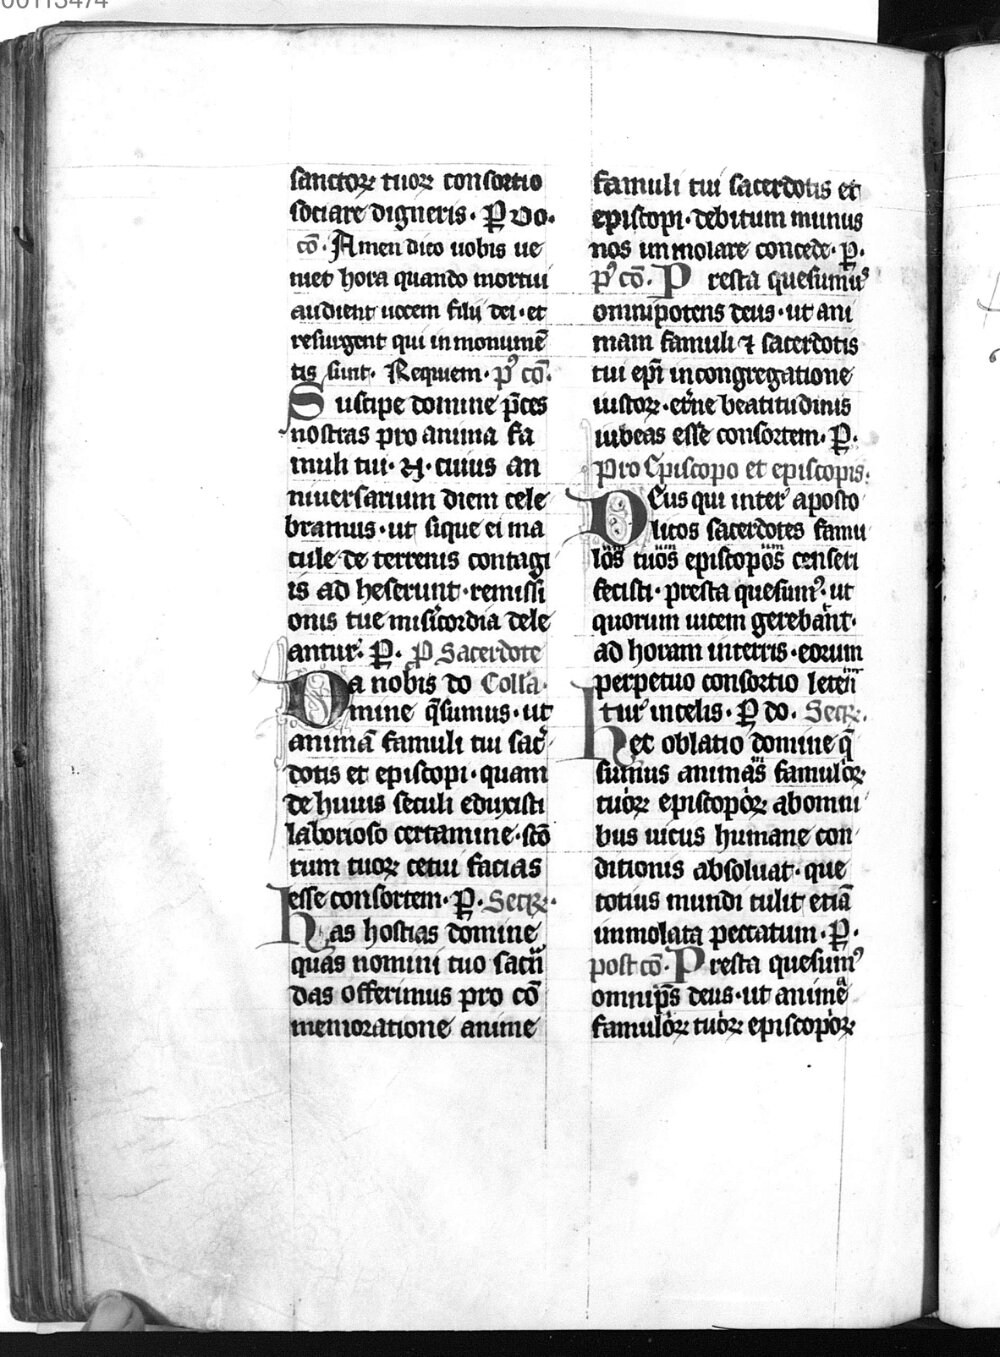 00113474
sanctoꝝ tuoꝝ consortio
sociare digneris · Ꝑ Do·
cō · Amen dico uobis ue
niet hora quando mortui
audient uocem filii dei · et
resurgent qui in monumē
tis sunt · Requiem · pꝰ cō ·
Suscipe domine p̄ces
nostras pro anima fa
muli tui · N · cuius an
niuersarium diem cele
bramus · ut sique ei ma
cule de terrenis contagi
is ad heserunt · remissi
onis tue misicordia dele
antur · Ꝑ · P Sacerdote
Da nobis do Colla ·
mine q̄sumus · ut
animā famuli tui sac̄
dotis et episcopi · quam
de huius seculi eduxisti
laborioso certamine · scō
rum tuoꝝ cetui facias
esse consortem · Ꝑ · Secꝝ ·
has hostias domine
quas nomini tuo sacri
das offerimus pro cō
memoratione anime
famuli tui sacerdotis et
episcopi · debitum munus
nos inmolare concede · Ꝑ ·
pꝰ cō · Presta quesumꝰ
omnipotens deus · ut ani
mam famuli ⁊ sacerdotis
tui ep̄i in congregatione
iustoꝝ · et̄ne beatitudinis
iubeas esse consortem · Ꝑ ·
Pro Episcopo et episcopis ·
Deus qui inter aposto
licos sacerdotes famu
los tuos episcopos censeri
fecisti · presta quesumꝰ · ut
quorum uicem gerebant ·
ad horam in terris · eorum
perpetuo consortio leten
tur in celis · Ꝑ do · Secꝝ ·
hec oblatio domine q̄
sumus animas famuloꝝ
tuoꝝ episcopoꝝ ab omni
bus uicus humane con
ditionis absoluat · que
totius mundi tulit etiā
inmolata peccatum · Ꝑ ·
post cō · Presta quesumꝰ
omnip̄s deus · ut anime
famuloꝝ tuoꝝ episcopoꝝ